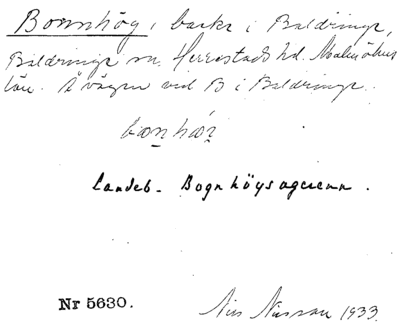 Bonnhög, backe i Baldringe,
Baldringe sn. Herrestads hd. Malmöhus
län. Å vägen ved B i Baldringe.
Landeb- Bogn höys agerenn.
Nr 5630. Nils Nilsson 1933.